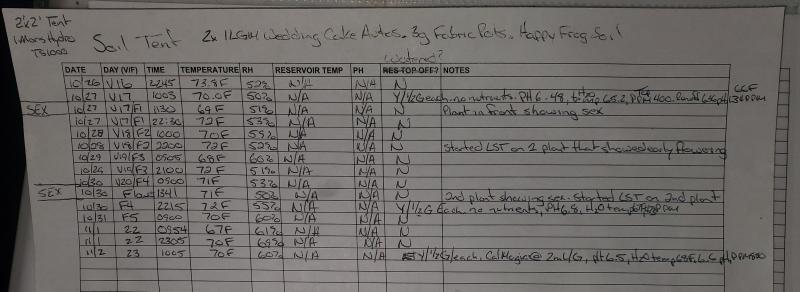 2'x2' Tent
1 Mars Hydro
TS1000
Soil Tent 2x ILGM Wedding Cake Autos. 3g Fabric Pots. Happy Frog Soil
Watered?
DATE DAY (V/F) TIME TEMPERATURE RH RESERVOIR TEMP PH RES TOP OFF? NOTES
10/26 V16 2245 73.8F 52% N/A N/A N
10/27 V17 1003 70.0F 50% N/A N/A Y/ 1/2G each. no nutrients. PH 6.48, H2O temp 65.2, PPM 400. Runoff
SEX 10/27 V17/F1 1130 69F 51% N/A N/A N Plant in front showing sex
10/27 V17/F1 22:30 72F 53% N/A N/A N
10/28 V18/F2 1000 70F 55% N/A N/A N
10/28 V18/F2 2200 72F 52% N/A N/A N Started LST on 1 plant that showed early flowering
10/29 V19/F3 0505 68F 60% N/A N/A N
10/29 V19/F3 2100 72F 51% N/A N/A N
10/30 V20/F4 0900 71F 53% N/A N/A N
SEX 10/30 Flower 1341 71F 50% N/A N/A N 2nd plant showing sex. Started LST on 2nd plant
10/30 F4 2215 72F 55% N/A N/A Y/ 1/2G Each, no nutrients, PH 6.8, H2O temp
10/31 F5 0900 70F 60% N/A N/A N
11/1 22 0954 67F 61% N/A N/A N
11/1 22 2305 70F 69% N/A N/A N
11/2 23 1005 70F 60% N/A N/A Y/ 1/2G/each, CalMagic @ 2mL/G, pH 6.5, H2O temp 68F,